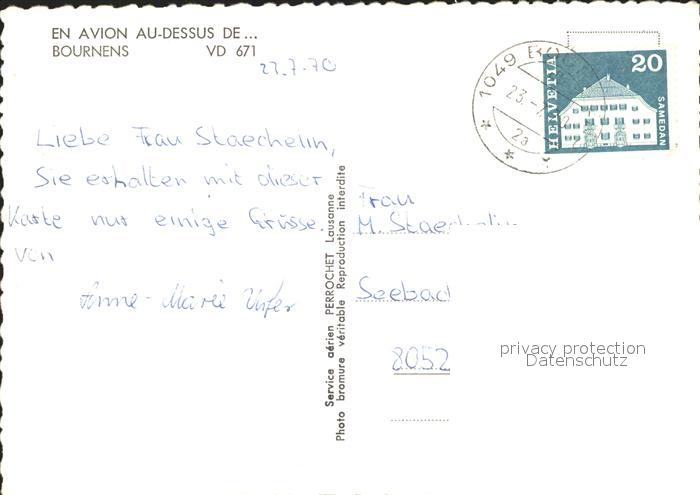 EN AVION AU-DESSUS DE...
BOURNENS VD 671
23.7.70
Liebe Frau Staechelin,
Sie erhalten mit dieser
Karte nur einige Grüsse.
von
Anne-Marie
Service aérien PERROCHET Lausanne
Photo bromure véritable Reproduction interdite
1049
23.
2a
HELVETIA
20
SAMEDAN
Frau
M. Staechelin
Seebach
8052
privacy protection
Datenschutz